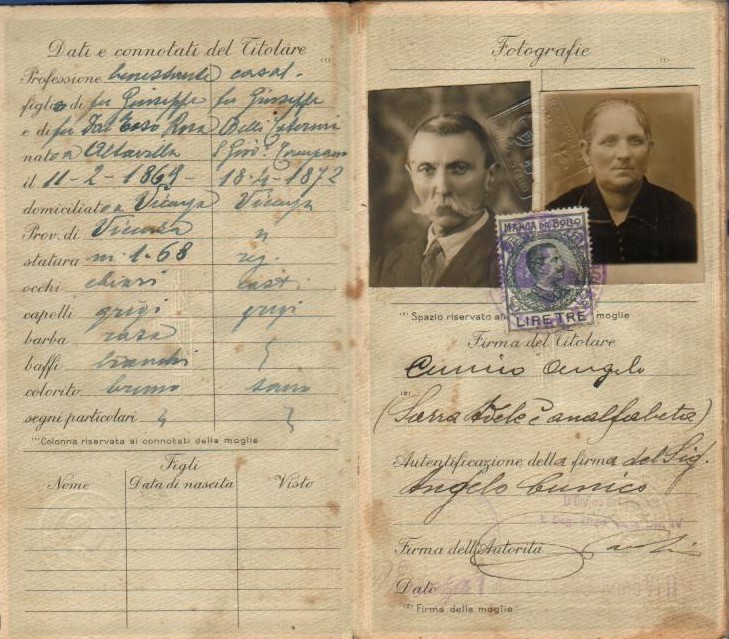 Dati e connotati del Titolare
(1)
Professione benestante casal.
figlio di fu Giuseppe fu Giuseppe
e di fu Dal Toso Rosa Belli
nato a Altavilla S. Giov.
il 11-2-1869- 18-4-1872
domiciliato a Vicenza Vicenza
Prov. di Vicenza "
statura m. 1.68 reg.
occhi chiari cast
capelli grigi grigi
barba rasa
baffi bianchi
colorito bruno sano
segni particolari
(1) Colonna riservata ai connotati della moglie
Figli
Nome Data di nascita Visto
Fotografie
(1)
MARCA DA BOLLO
LIRE TRE
(1) Spazio riservato al moglie
Firma del Titolare
Cunico Angelo
(2)
(Sarra Adele è analfabeta)
Autentificazione della firma del Sig.
Angelo Cunico
Firma dell'Autorità
Data
(2) Firma della moglie